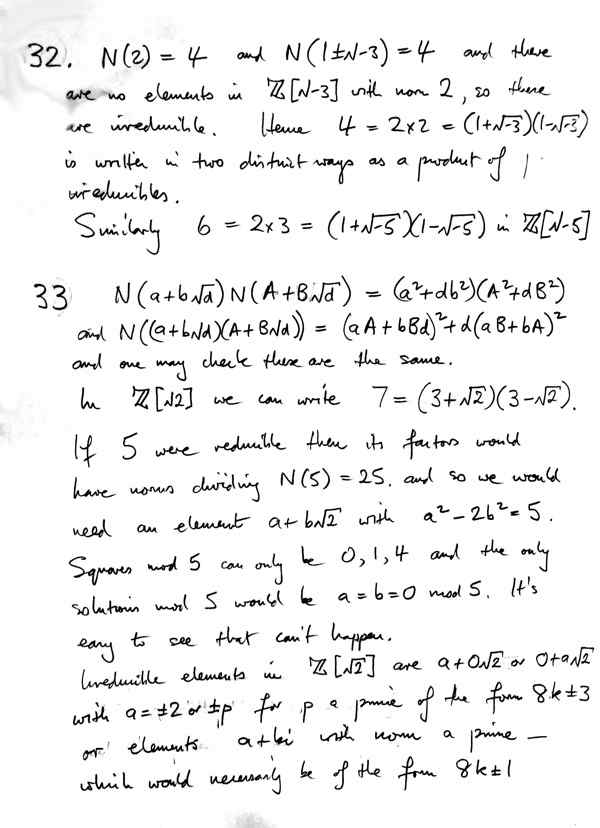 32. N(2) = 4 and N(1±√-3) = 4 and there
are no elements in ℤ[√-3] with norm 2, so there
are irreducible. Hence 4 = 2×2 = (1+√-3)(1-√-3)
is written in two distinct ways as a product of
irreducibles.
Similarly 6 = 2×3 = (1+√-5)(1-√-5) in ℤ[√-5]
33 N(a+b√d)N(A+B√d) = (a²+db²)(A²+dB²)
and N((a+b√d)(A+B√d)) = (aA+bBd)²+d(aB+bA)²
and one may check these are the same.
In ℤ[√2] we can write 7 = (3+√2)(3-√2).
If 5 were reducible then its factors would
have norms dividing N(5) = 25. and so we would
need an element a+b√2 with a²-2b² = 5.
Squares mod 5 can only be 0, 1, 4 and the only
solutions mod 5 would be a = b = 0 mod 5. It's
easy to see that can't happen.
Irreducible elements in ℤ[√2] are a+0√2 or 0+a√2
with a = ±2 or ±p for p a prime of the form 8k±3
or elements a+bi with norm a prime —
which would necessarily be of the form 8k±1